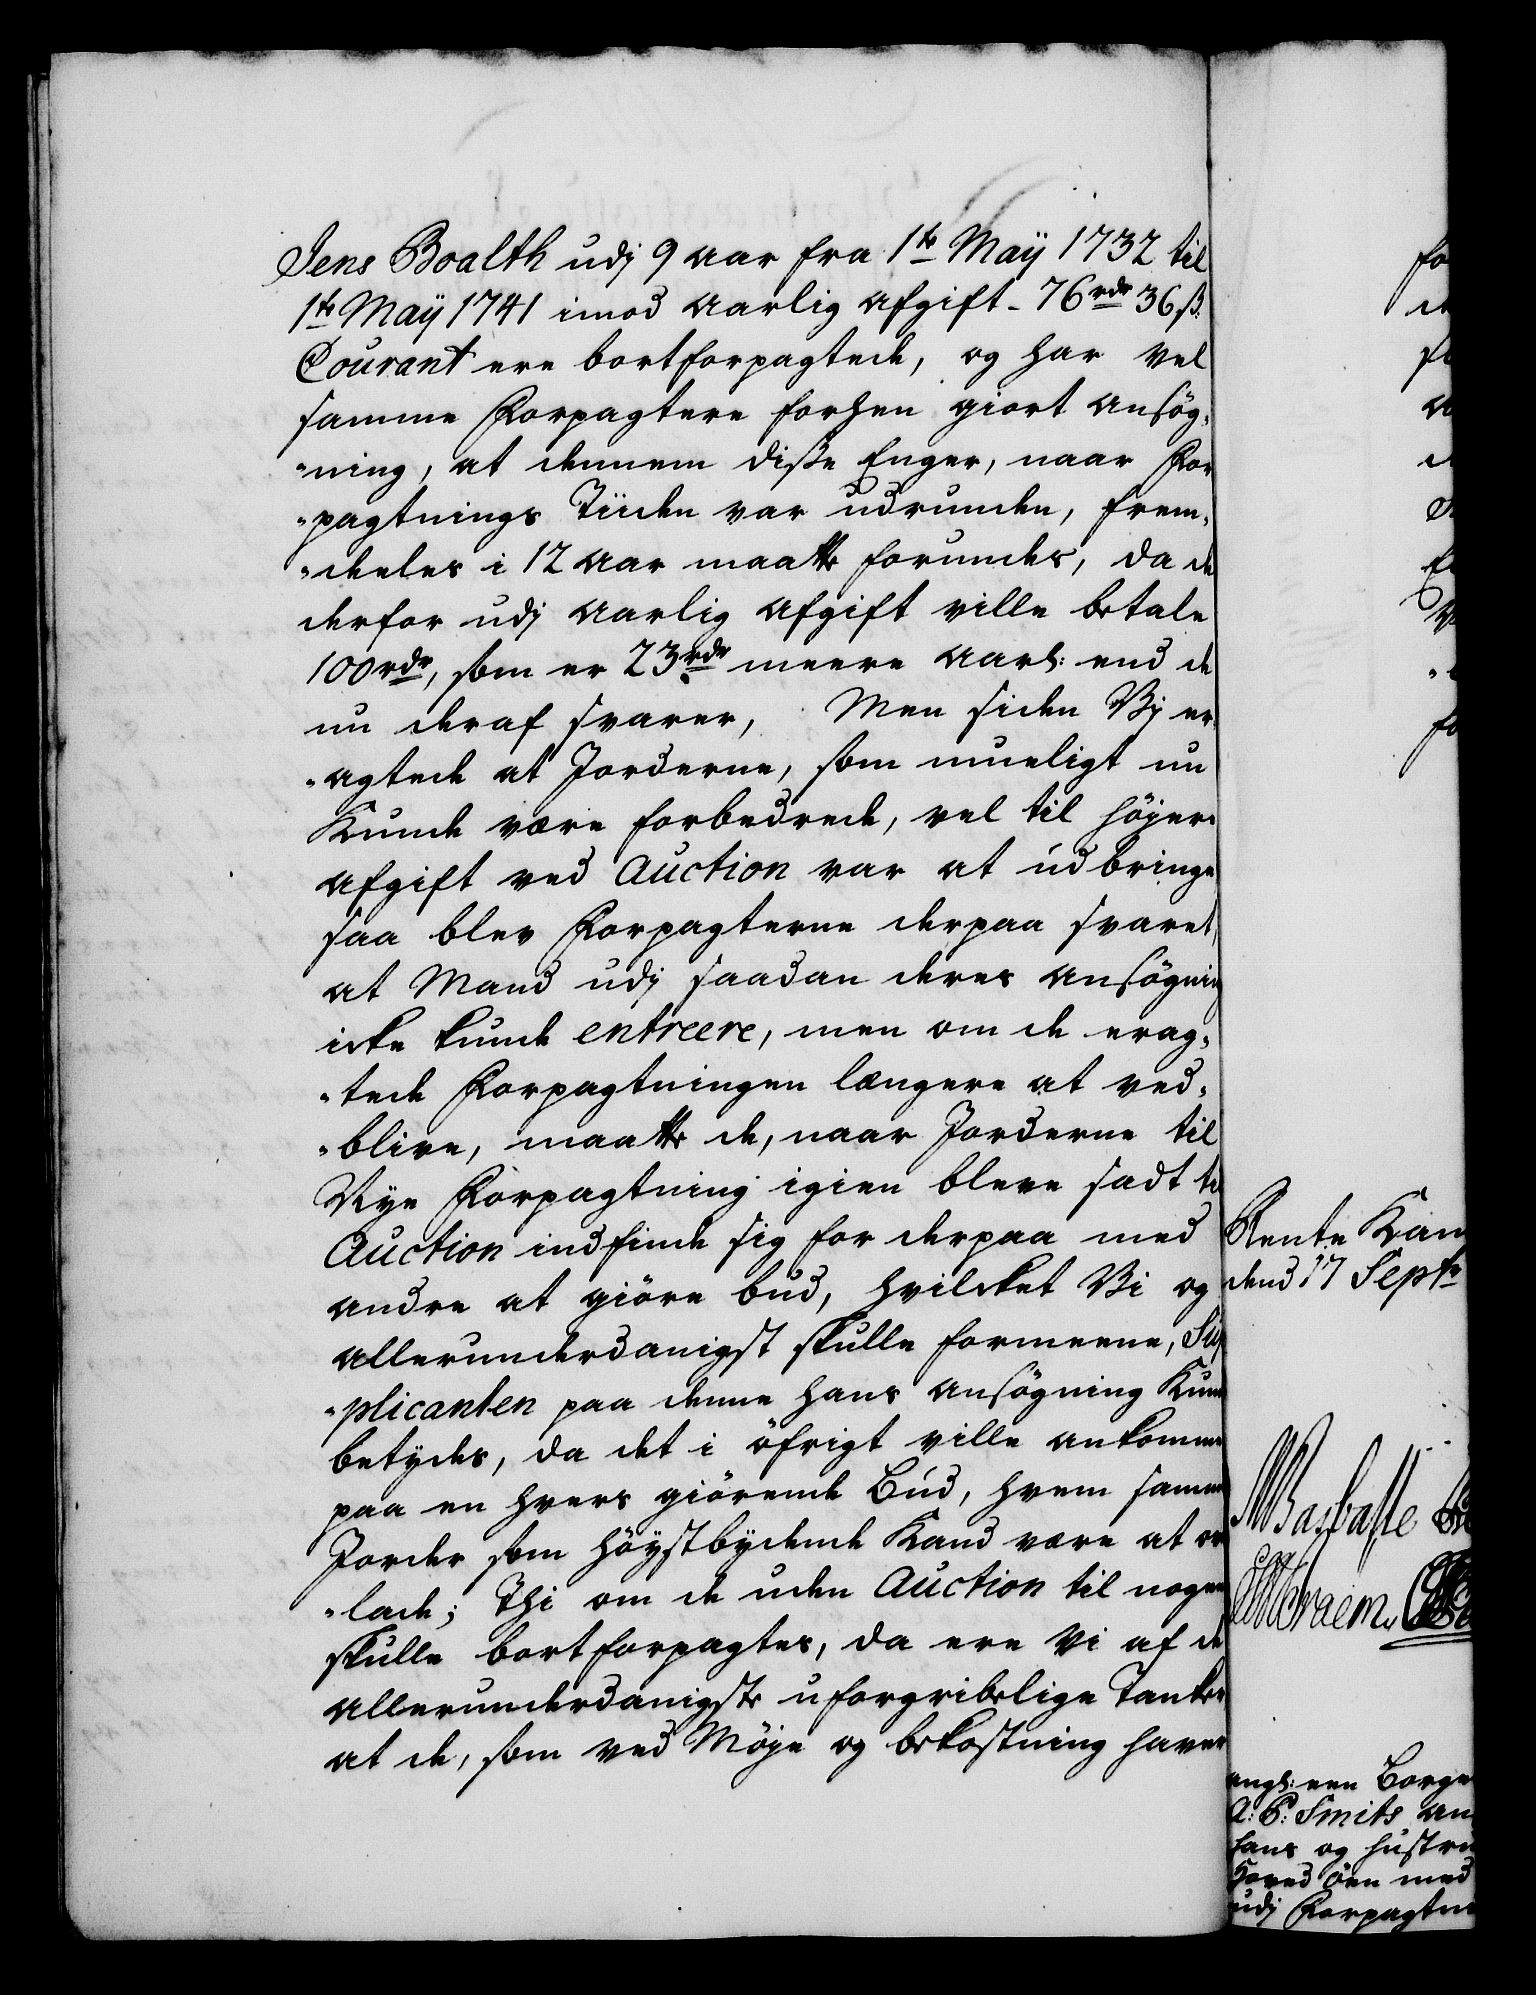 Jens Boalth udj 9 aar fra 1te Maÿ 1732 til
1te Maÿ 1741 imod aarlig afgift - 76 rdr 36 ß.
Courant ere bortforpagtede, og har vel
samme Forpagtere forhen giort ansøg-
-ning, at dennem disse Enger, naar For
-pagtnings Tiiden var udrunden, frem-
-deeles i 12 aar maatte forundes, da de
derfor udj aarlig afgift ville betale
100 rdr, som er 23 rdr meere aarl: end de
nu deraf svarer, Men siden Vj er-
-agtede at Jorderne, som mueligt nu
Kunde være forbedrede, vel til højere
afgift ved Auction var at udbringe
saa blev Forpagterne derpaa svaret,
at Mand udj saadan deres ansøgning
icke kunde entreere, men om de erag-
-tede Forpagtningen længere at ved-
-blive, maatte de, naar Jorderne til
Nÿe Forpagtning igien bleve sadt til
Auction indfinde sig for derpaa med
andre at giöre bud, hvilcket Vi og
allerunderdanigst skulle formeene, Sup
-plicanten paa denne hans ansøgning Kunde
betydes, da det i öfrigt ville ankomme
paa en hvers giörende Bud, hvem samme
Jorder som höystbydende Kand være at over
-lade; Thi om de uden Auction til nogen
skulle bortforpagtes, da ere Vi af de
allerunderdanigste uforgribelige Tanker
at de, som ved Möje og bekostning haver
Rente Kam
dend 17 Septe
angl: een Borge
A: P: Smits an
hans og hustru
Hoved Öen med
udj Forpagtn